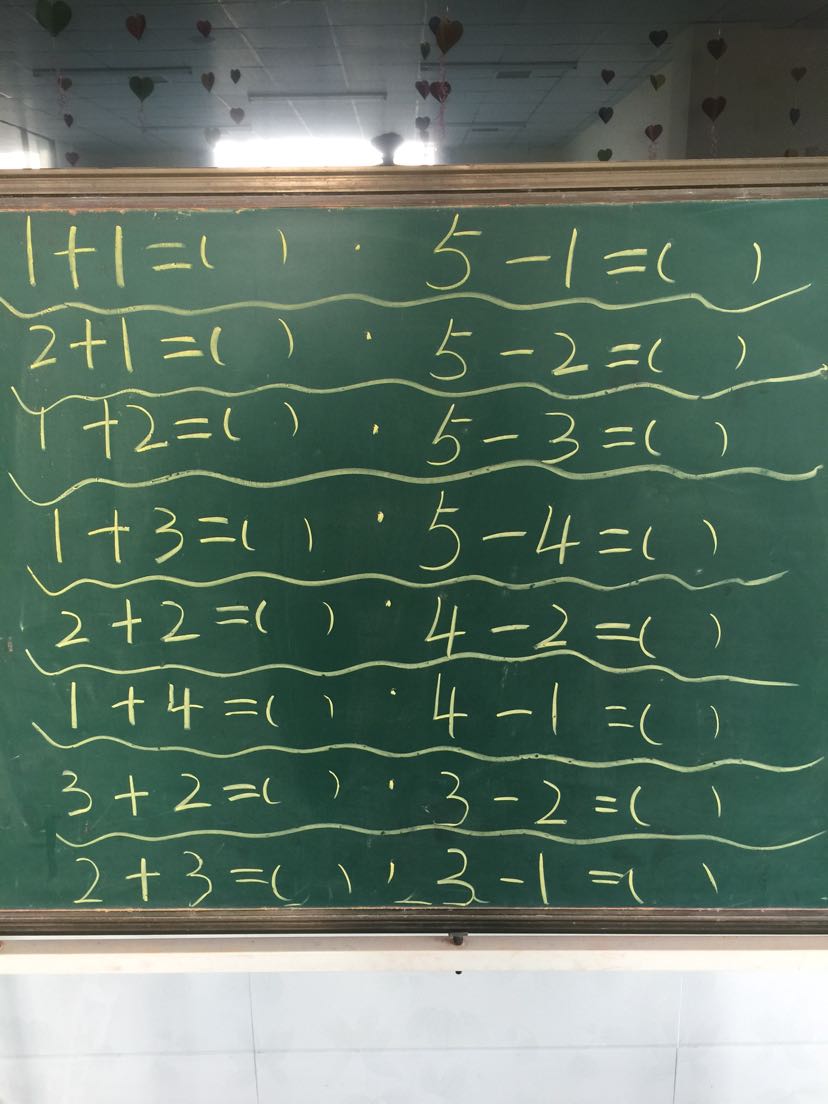 1+1=( ) · 5-1=( )
2+1=( ) · 5-2=( )
1+2=( ) · 5-3=( )
1+3=( ) · 5-4=( )
2+2=( ) · 4-2=( )
1+4=( ) · 4-1=( )
3+2=( ) · 3-2=( )
2+3=( ) · 3-1=( )